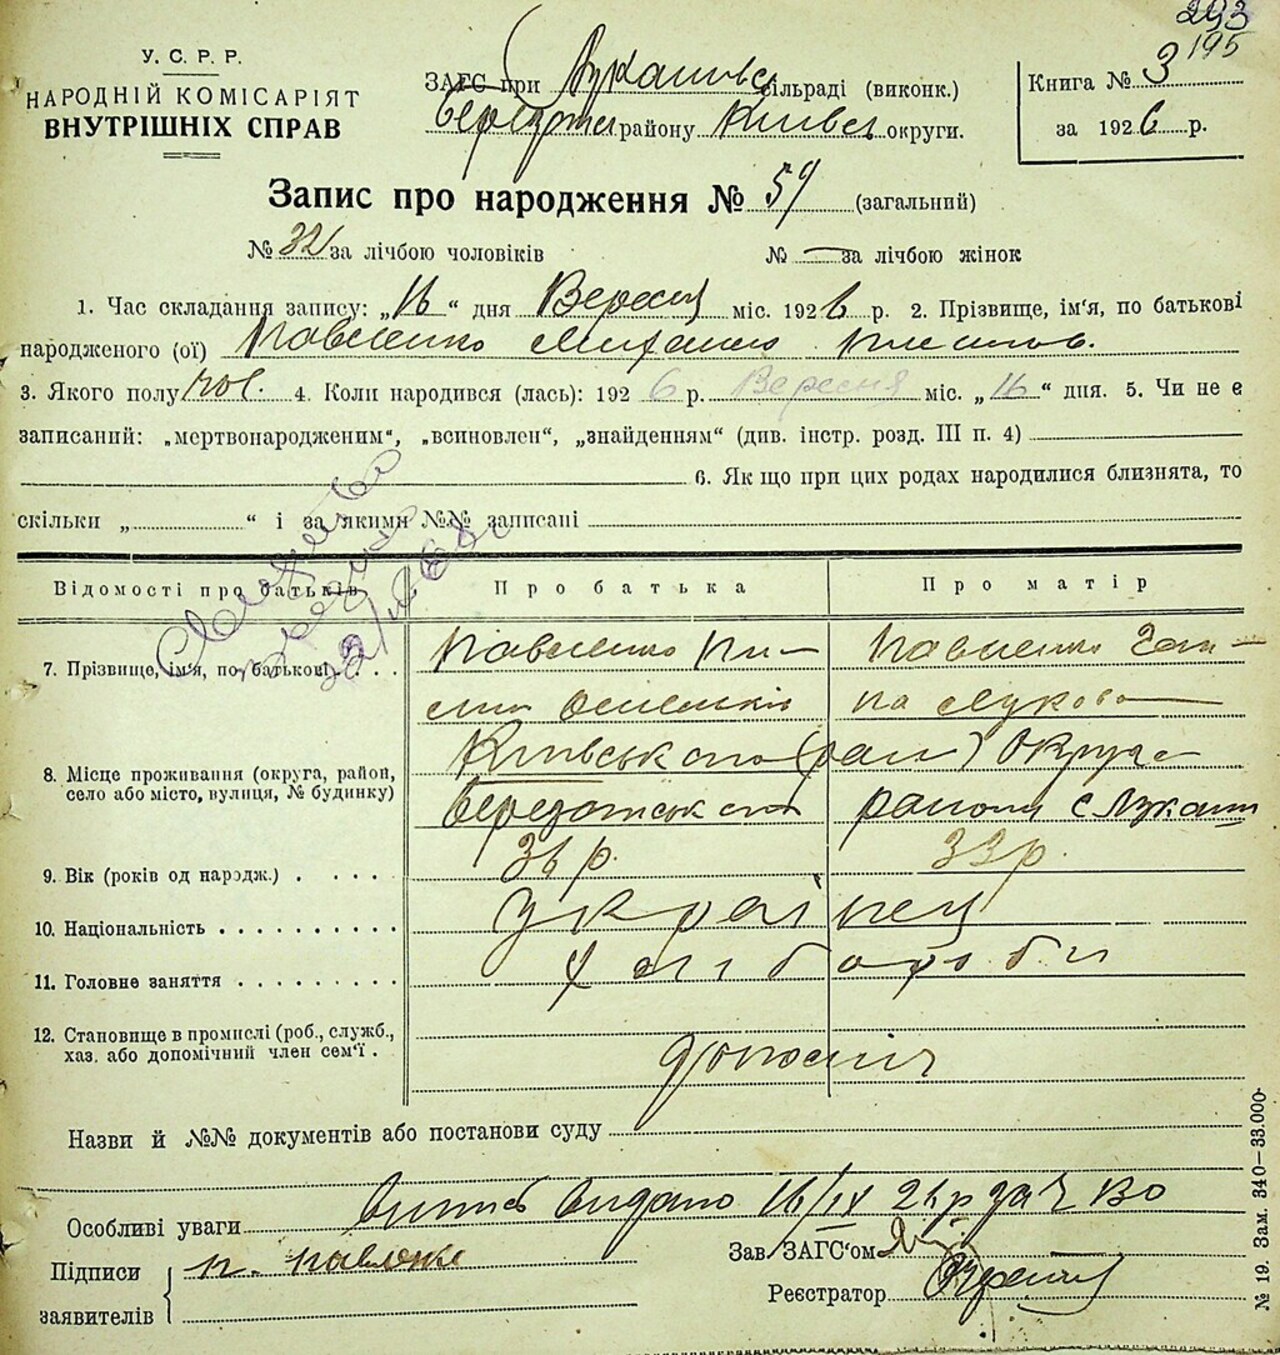 293
195
У. С. Р. Р.
НАРОДНІЙ КОМІСАРІЯТ
ВНУТРІШНІХ СПРАВ
ЗАГС при Лукашівс сільраді (виконк.)
району Київсь округи.
Книга № 3
за 1926 р.
Запис про народження № 59 (загальний)
№ 32 за лічбою чоловіків № — за лічбою жінок
1. Час складання запису: „16“ дня Вересня міс. 1926 р. 2. Прізвище, ім'я, по батькові
народженого (ої) Павленко Михайло Пилипов.
3. Якого полу чол. 4. Коли народився (лась): 1926 р. Вересня міс. „16“ дня. 5. Чи не є
записаний: „мертвонародженим“, „всиновлен“, „знайденням“ (див. інстр. розд. III п. 4)
6. Як що при цих родах народилися близнята, то
скільки „ “ і за якими №№ записані
Відомості про батьків Про батька Про матір
7. Прізвище, ім'я, по батькові . . . . Павленко Пи- Павленко
лип
8. Місце проживання (округа, район, село або місто, вулиця, № будинку) Київського (рай) Округа
району с Лукаші
9. Вік (років од народж.) . . . . . 36 р. 33 р.
10. Національність . . . . . . . . . . українец
11. Головне заняття . . . . . . . . . хліборобы
12. Становище в промислі (роб., служб., хаз. або допомічний член сем'ї .
Назви й №№ документів або постанови суду
Особливі уваги Витяг видано 16/IX 26 р за ч
Підписи
заявителів
п. павленко
Зав. ЗАГС'ом
Реєстратор
№ 19. Зам. 340—33.000